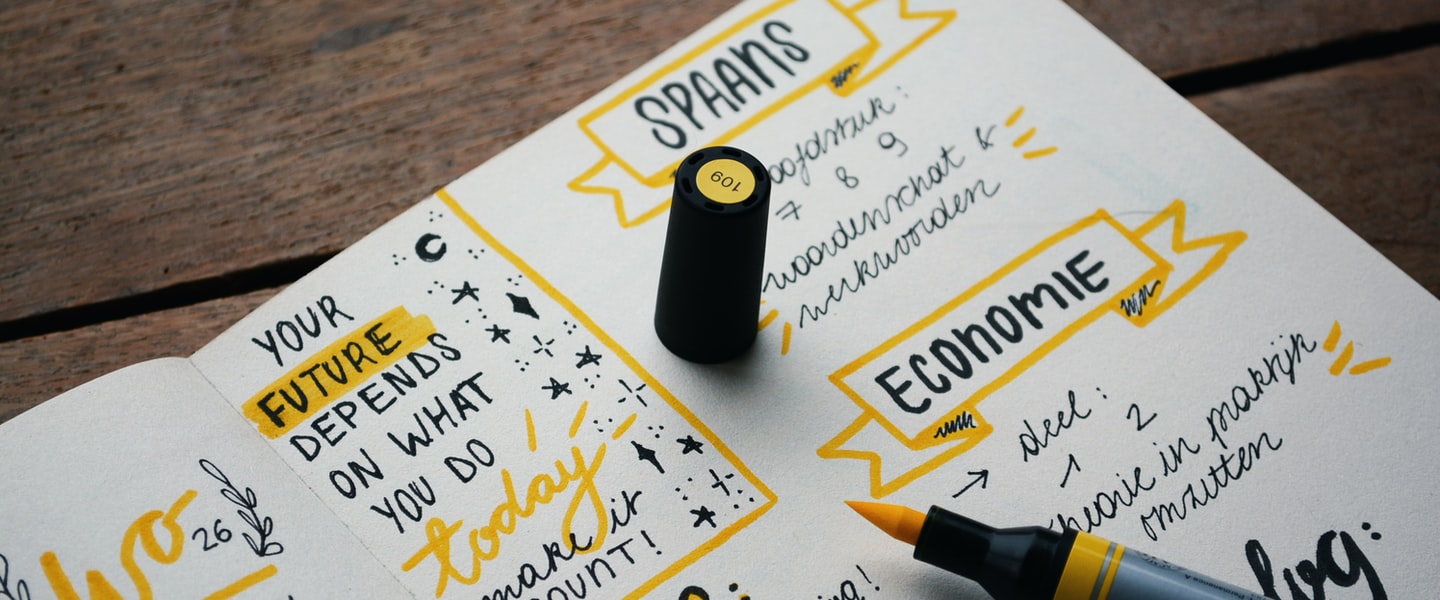 SPAANS
7 8 9
woordenschat &
werkwoorden
ECONOMIE
→ deel:
1 2
theorie in praktijk
omzetten
YOUR
FUTURE
DEPENDS
ON WHAT
YOU DO
today
make it
COUNT!
wo
26
109